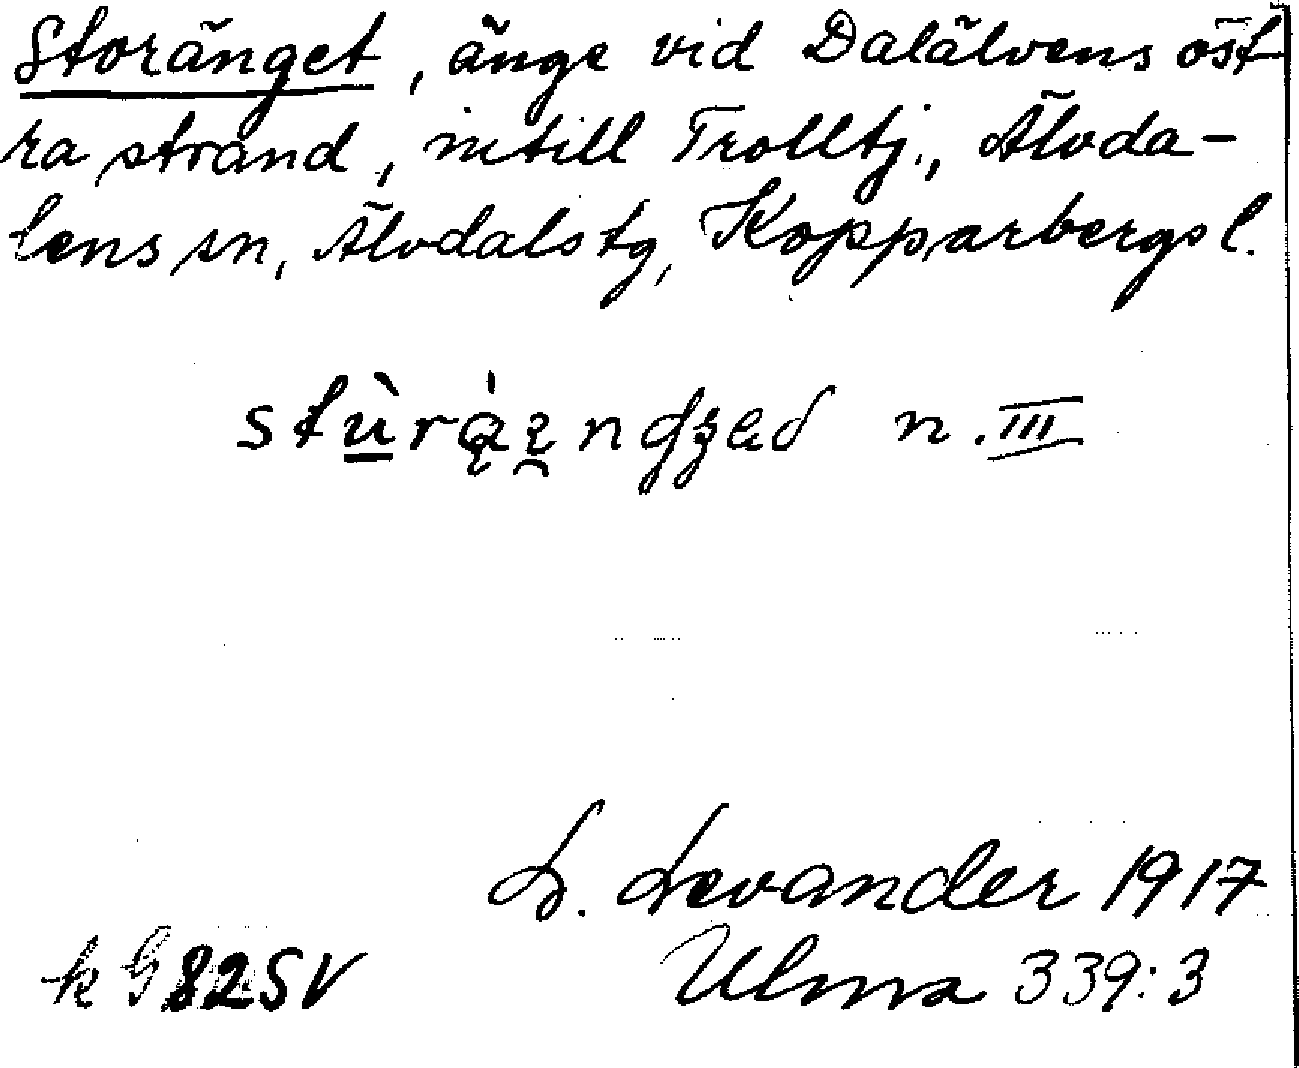 Storänget, änge vid Dalälvens öst
ra strand, intill Trolltj., Älvda-
lens sn, Älvdals tg, Kopparbergs l.
n. III
L. Levander 1917
k G 82 SV
Ulma 339:3